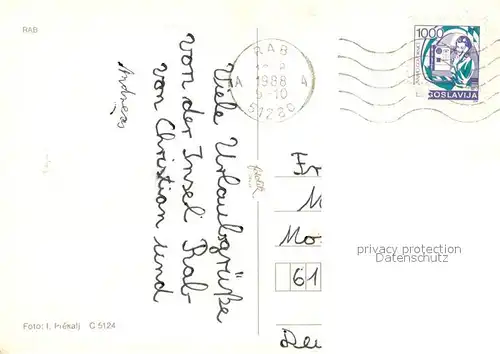 RAB
Viele Urlaubsgrüße
von der Insel Rab
von Christian und
Andreas
Foto: I. Prêkalj C 5124
RAB
1988
A A
51280
1000
JUGOSLAVIJA
Fr
M
Mo
61
privacy protection
Datenschutz